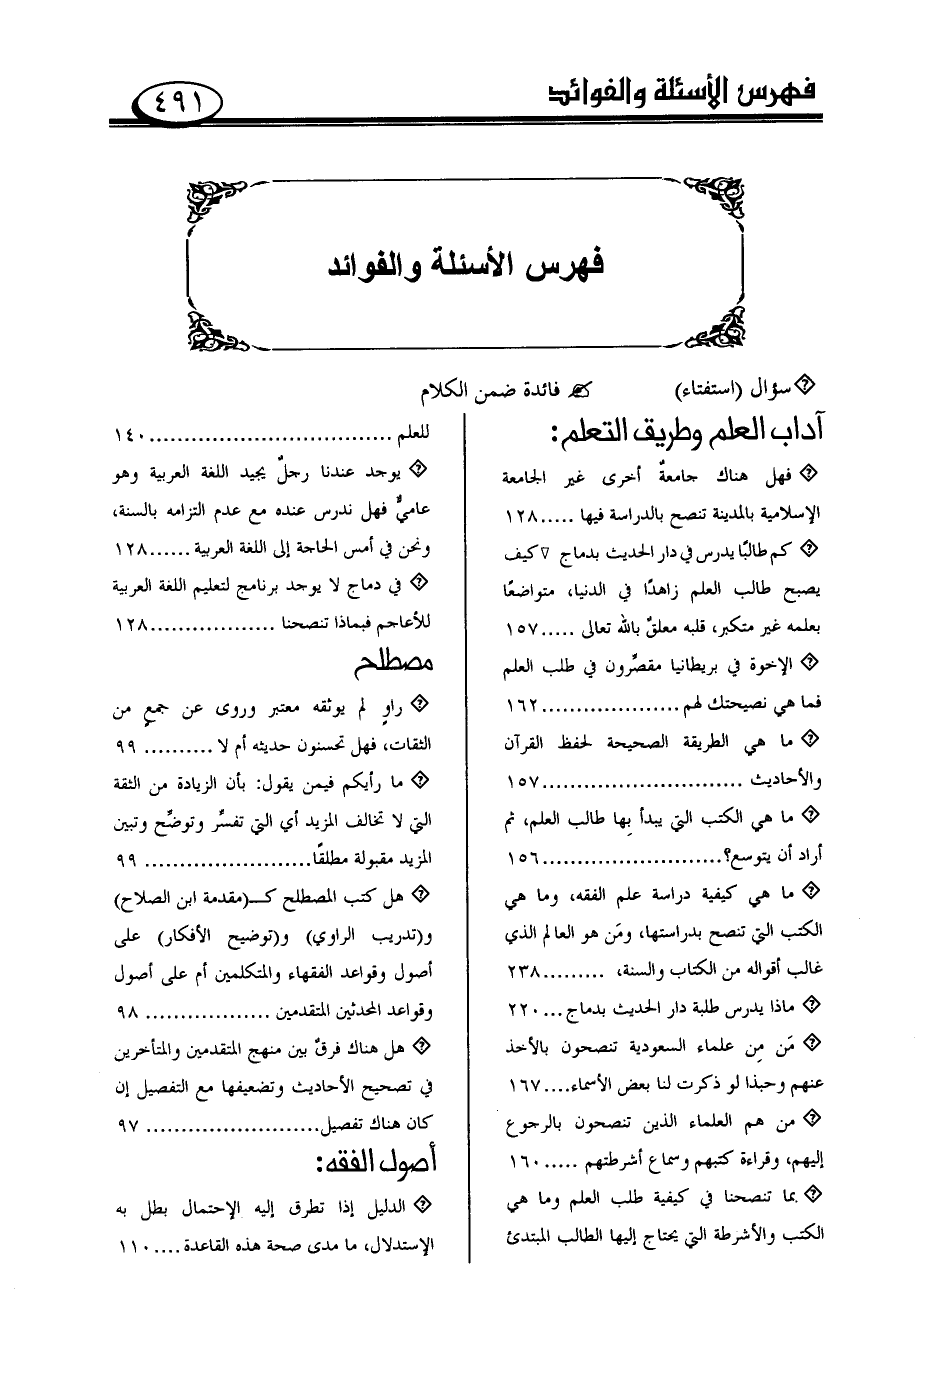 فهرس الأسئلة والفوائد
٤٩١
فهرس الأسئلة والفوائد
سؤال (استفتاء)
فائدة ضمن الكلام
آداب العلم وطريق التعلم:
فهل هناك جامعةٌ أخرى غير الجامعة
الإسلامية بالمدينة تنصح بالدراسة فيها .....١٢٨
كم طالبًا يدرس في دار الحديث بدماج ٧ كيف
يصبح طالب العلم زاهدًا في الدنيا، متواضعًا
بعلمه غير متكبر، قلبه معلقٌ بالله تعالى .....١٥٧
الإخوة في بريطانيا مقصِّرون في طلب العلم
فما هي نصيحتك لهم....................١٦٢
ما هي الطريقة الصحيحة لحفظ القرآن
والأحاديث .............................١٥٧
ما هي الكتب التي يبدأ بِها طالب العلم، ثم
أراد أن يتوسع؟..........................١٥٦
ما هي كيفية دراسة علم الفقه، وما هي
الكتب التي تنصح بدراستها، ومَن هو العالم الذي
غالب أقواله من الكتاب والسنة، .........٢٣٨
ماذا يدرس طلبة دار الحديث بدماج ...٢٢٠
مَن مِن علماء السعودية تنصحون بالأخذ
عنهم وحبذا لو ذكرت لنا بعض الأسماء....١٦٧
من هم العلماء الذين تنصحون بالرجوع
إليهم، وقراءة كتبهم وسماع أشرطتهم .....١٦٠
بما تنصحنا في كيفية طلب العلم وما هي
الكتب والأشرطة التي يحتاج إليها الطالب المبتدئ
للعلم ...................................١٤٠
يوجد عندنا رجلٌ يجيد اللغة العربية وهو
عاميٌّ فهل ندرس عنده مع عدم التزامه بالسنة،
ونحن في أمس الحاجة إلى اللغة العربية ......١٢٨
في دماج لا يوجد برنامج لتعليم اللغة العربية
للأعاجم فبماذا تنصحنا ..................١٢٨
مصطلح
راوٍ لم يوثقه معتبر وروى عن جمعٍ من
الثقات، فهل تحسنون حديثه أم لا .......... ٩٩
ما رأيكم فيمن يقول: بأن الزيادة من الثقة
التي لا تخالف المزيد أي التي تفسِّر وتوضِّح وتبين
المزيد مقبولة مطلقًا........................ ٩٩
هل كتب المصطلح كـ(مقدمة ابن الصلاح)
و(تدريب الراوي) و(توضيح الأفكار) على
أصول وقواعد الفقهاء والمتكلمين أم على أصول
وقواعد المحدثين المتقدمين .................. ٩٨
هل هناك فرقٌ بين منهج المتقدمين والمتأخرين
في تصحيح الأحاديث وتضعيفها مع التفصيل إن
كان هناك تفصيل......................... ٩٧
أصول الفقه:
الدليل إذا تطرق إليه الإحتمال بطل به
الإستدلال، ما مدى صحة هذه القاعدة ....١١٠